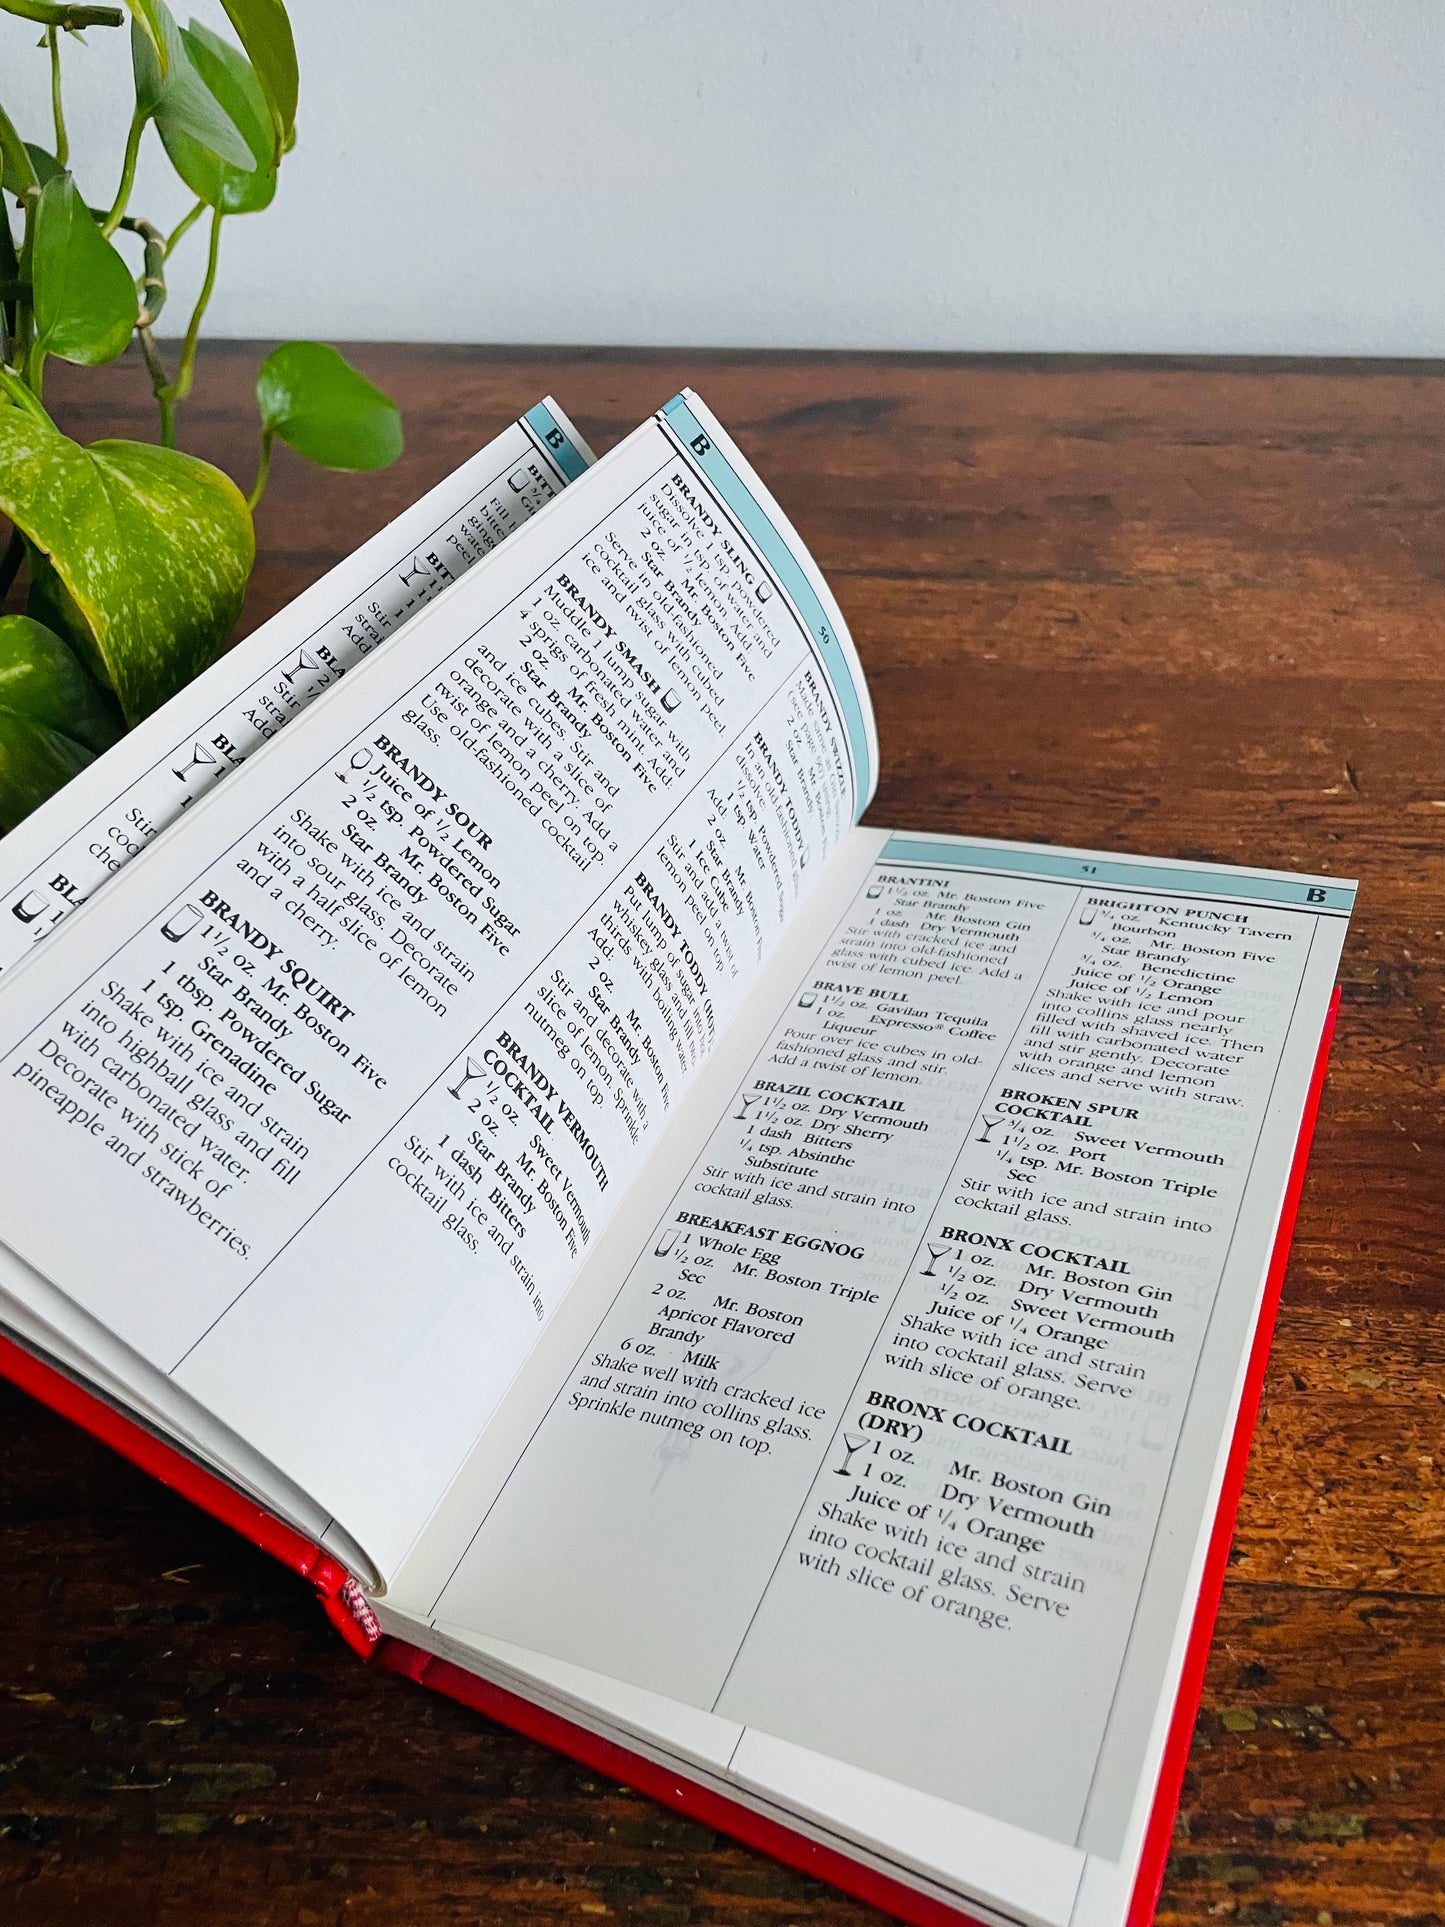 B
BITT
3/4
Fill
bitte
ging
wate
peel
BITT
Stir
strai
Add
BLA
Stir
stra
Add
BLA
Stir
coc
che
BLA
B
50
BRANDY SLING
Dissolve 1 tsp. powdered
sugar in tsp of water and
juice of 1/2 lemon. Add:
2 oz. Mr. Boston Five
Star Brandy
Serve in old-fashioned
cocktail glass with cubed
ice and twist of lemon peel.
BRANDY SMASH
Muddle 1 lump sugar with
1 oz. carbonated water and
4 sprigs of fresh mint. Add:
2 oz. Mr. Boston Five
Star Brandy
and ice cubes. Stir and
decorate with a slice of
orange and a cherry. Add a
twist of lemon peel on top.
Use old-fashioned cocktail
glass.
BRANDY SOUR
Juice of 1/2 Lemon
1/2 tsp. Powdered Sugar
2 oz. Mr. Boston Five
Star Brandy
Shake with ice and strain
into sour glass. Decorate
with a half slice of lemon
and a cherry.
BRANDY SQUIRT
1 1/2 oz. Mr. Boston Five
Star Brandy
1 tbsp. Powdered Sugar
1 tsp. Grenadine
Shake with ice and strain
into highball glass and fill
with carbonated water.
Decorate with stick of
pineapple and strawberries.
BRANDY SWIZZLE
Made same as Gin
(see page 90)
2 oz. Mr. Boston
Star Brandy
BRANDY TODDY
In an old-fashioned glass
dissolve:
1/2 tsp. Powdered Sugar
1 tsp. Water
Add:
2 oz. Mr. Boston Five
Star Brandy
1 Ice Cube
Stir and add a twist of
lemon peel on top.
BRANDY TODDY (HOT)
Put lump of sugar into
whiskey glass and fill
thirds with boiling water
Add:
2 oz. Mr. Boston Five
Star Brandy
Stir and decorate with a
slice of lemon. Sprinkle
nutmeg on top.
BRANDY VERMOUTH
COCKTAIL
1/2 oz. Sweet Vermouth
2 oz. Mr. Boston Five
Star Brandy
1 dash Bitters
Stir with ice and strain into
cocktail glass.
51
B
BRANTINI
1 1/2 oz. Mr. Boston Five
Star Brandy
1 oz. Mr. Boston Gin
1 dash Dry Vermouth
Stir with cracked ice and
strain into old-fashioned
glass with cubed ice. Add a
twist of lemon peel.
BRAVE BULL
1 1/2 oz. Gavilan Tequila
1 oz. Expresso® Coffee
Liqueur
Pour over ice cubes in old-
fashioned glass and stir.
Add a twist of lemon.
BRAZIL COCKTAIL
1 1/2 oz. Dry Vermouth
1 1/2 oz. Dry Sherry
1 dash Bitters
1/4 tsp. Absinthe
Substitute
Stir with ice and strain into
cocktail glass.
BREAKFAST EGGNOG
1 Whole Egg
1/2 oz. Mr. Boston Triple
Sec
2 oz. Mr. Boston
Apricot Flavored
Brandy
6 oz. Milk
Shake well with cracked ice
and strain into collins glass.
Sprinkle nutmeg on top.
BRIGHTON PUNCH
3/4 oz. Kentucky Tavern
Bourbon
3/4 oz. Mr. Boston Five
Star Brandy
3/4 oz. Benedictine
Juice of 1/2 Orange
Juice of 1/2 Lemon
Shake with ice and pour
into collins glass nearly
filled with shaved ice. Then
fill with carbonated water
and stir gently. Decorate
with orange and lemon
slices and serve with straw.
BROKEN SPUR
COCKTAIL
3/4 oz. Sweet Vermouth
1 1/2 oz. Port
1/4 tsp. Mr. Boston Triple
Sec
Stir with ice and strain into
cocktail glass.
BRONX COCKTAIL
1 oz. Mr. Boston Gin
1/2 oz. Dry Vermouth
1/2 oz. Sweet Vermouth
Juice of 1/4 Orange
Shake with ice and strain
into cocktail glass. Serve
with slice of orange.
BRONX COCKTAIL
(DRY)
1 oz. Mr. Boston Gin
1 oz. Dry Vermouth
Juice of 1/4 Orange
Shake with ice and strain
into cocktail glass. Serve
with slice of orange.